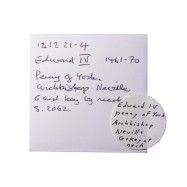 12 12 21-4
Edward IV 1461-70
Penny of York
Archbishop Neville
G and key by neck
S. 2062.
Edward IV
penny of York
Archbishop
Neville
G & key at
neck